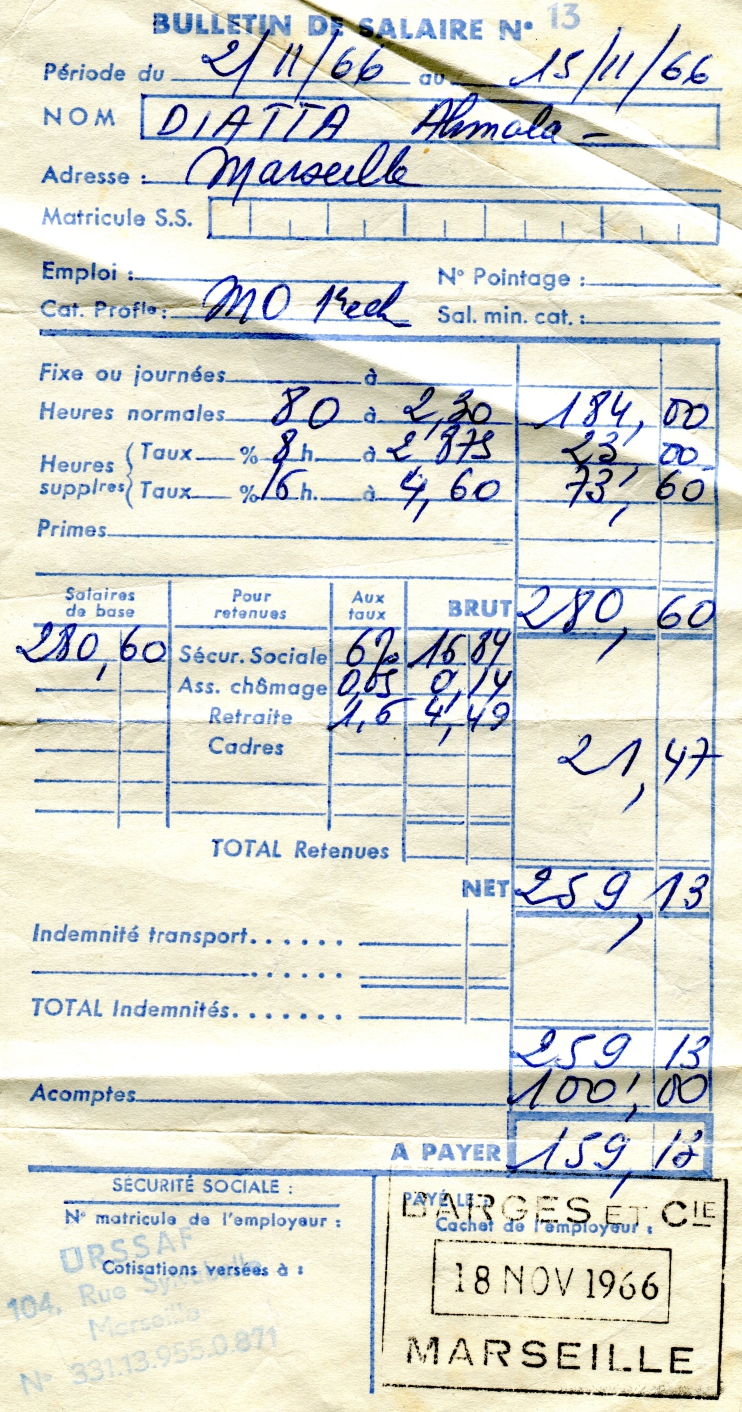 BULLETIN DE SALAIRE N° 13
Période du 2/11/66 au 15/11/66
NOM DIATTA
Adresse : Marseille
Matricule S.S.
Emploi : N° Pointage :
Cat. Profle : MO Sal. min. cat. :
Fixe ou journées à
Heures normales 80 à 2,30 184,00
Heures supplres { Taux % 8 h. à 2 875 23,00
Taux % 16 h. à 4,60 73,60
Primes
Salaires de base Pour retenues Aux taux BRUT 280,60
280,60 Sécur. Sociale 6% 16 84
Ass. chômage 0,05 0,14
Retraite 1,6 4,49
Cadres 21,47
TOTAL Retenues
NET 259,13
Indemnité transport......
......
TOTAL Indemnités.......
259 13
Acomptes 100,00
A PAYER 159,13
SÉCURITÉ SOCIALE : PAYÉ LE :
N° matricule de l'employeur : Cachet de l'employeur :
Cotisations versées à :
URSSAF
104, Rue
Marseille
N° 331.13.955.0.871
BARGES ET CIE
18 NOV 1966
MARSEILLE